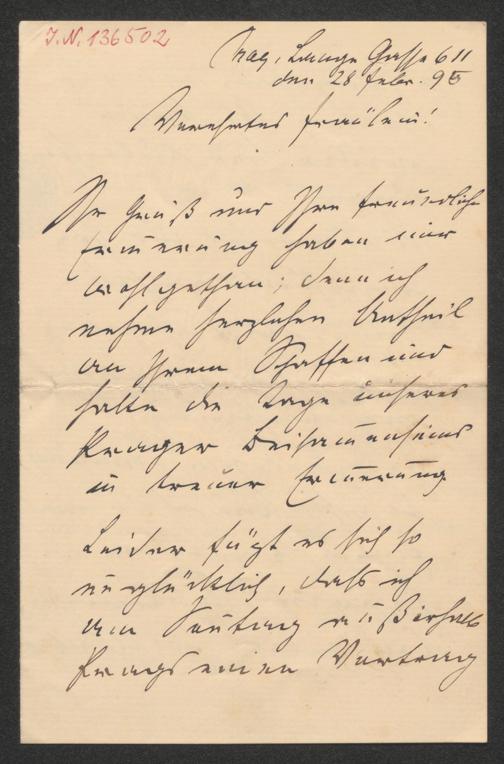 I.N. 136502
Prag, Lange Gasse 6 II
den 28 Febr. 95
Verehrtes Fräulein!
Ihr Gruß und Ihre freundliche
Erinnerung haben mir
wohlgethan; denn ich
nehme herzlichen Antheil
an Ihrem Schaffen und
halte die Tage unseres
Prager Beisammenseins
in treuer Erinnerung
Leider fügt es sich so
unglücklich, daß ich
am Sonntag außerhalb
Prags einen Vortrag